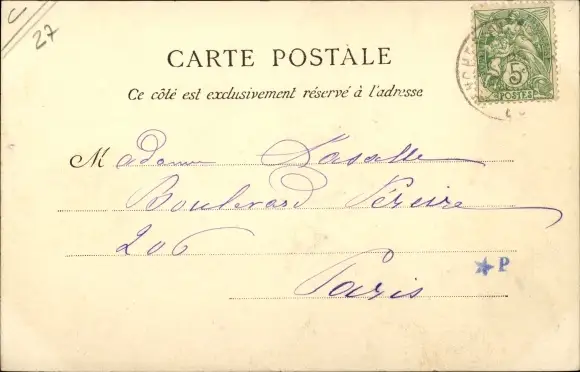 27
CARTE POSTALE
Ce côté est exclusivement réservé à l'adresse
5c
POSTES
Madame Lasalle
Boulevard Péreire
206
Paris
P